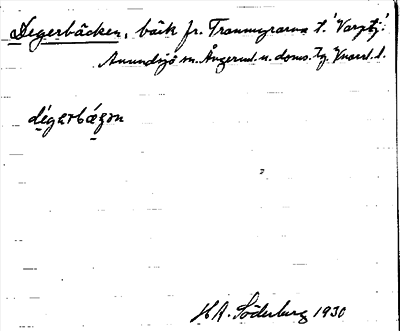 Degerbäcken, bäck fr. Tranmyrarna t. Vargtj.
Anundsjö sn. Ångerml. n. doms. Zg. l.
dégərbǽgən
H.A. Söderberg 1930